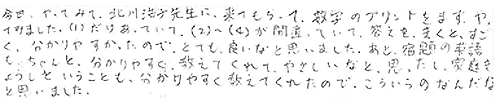 今日、やってみて、北川浩子先生に、来てもらって、数学のプリントをまず、やっ
てみました。(1)だけあっていて、(2)～(4)が間違っていて、答えをきくと、すご
く、分かりやすかったので、とても、良いなと思いました。あと、宿題の英語
も、ちゃんと、分かりやすく教えてくれて、やさしいなと、思ったし、家庭き
ょうしということも、分かりやすく教えてくれたので、こういうのなんだな
と思いました。